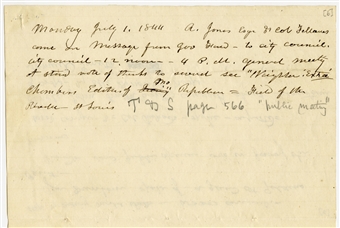 Monday July 1. 1844 A. Jones Esqr & Col Fellows
come in Message from Gov Ford - to city council.
city council - 12 noon - 4 P.M. general meeting
at stand vote of thanks to several see "Neighbor" Extra
Chambers Editor of Mo Republican = Field of the
Reveille - St Louis T & S page 566 "public meeting"